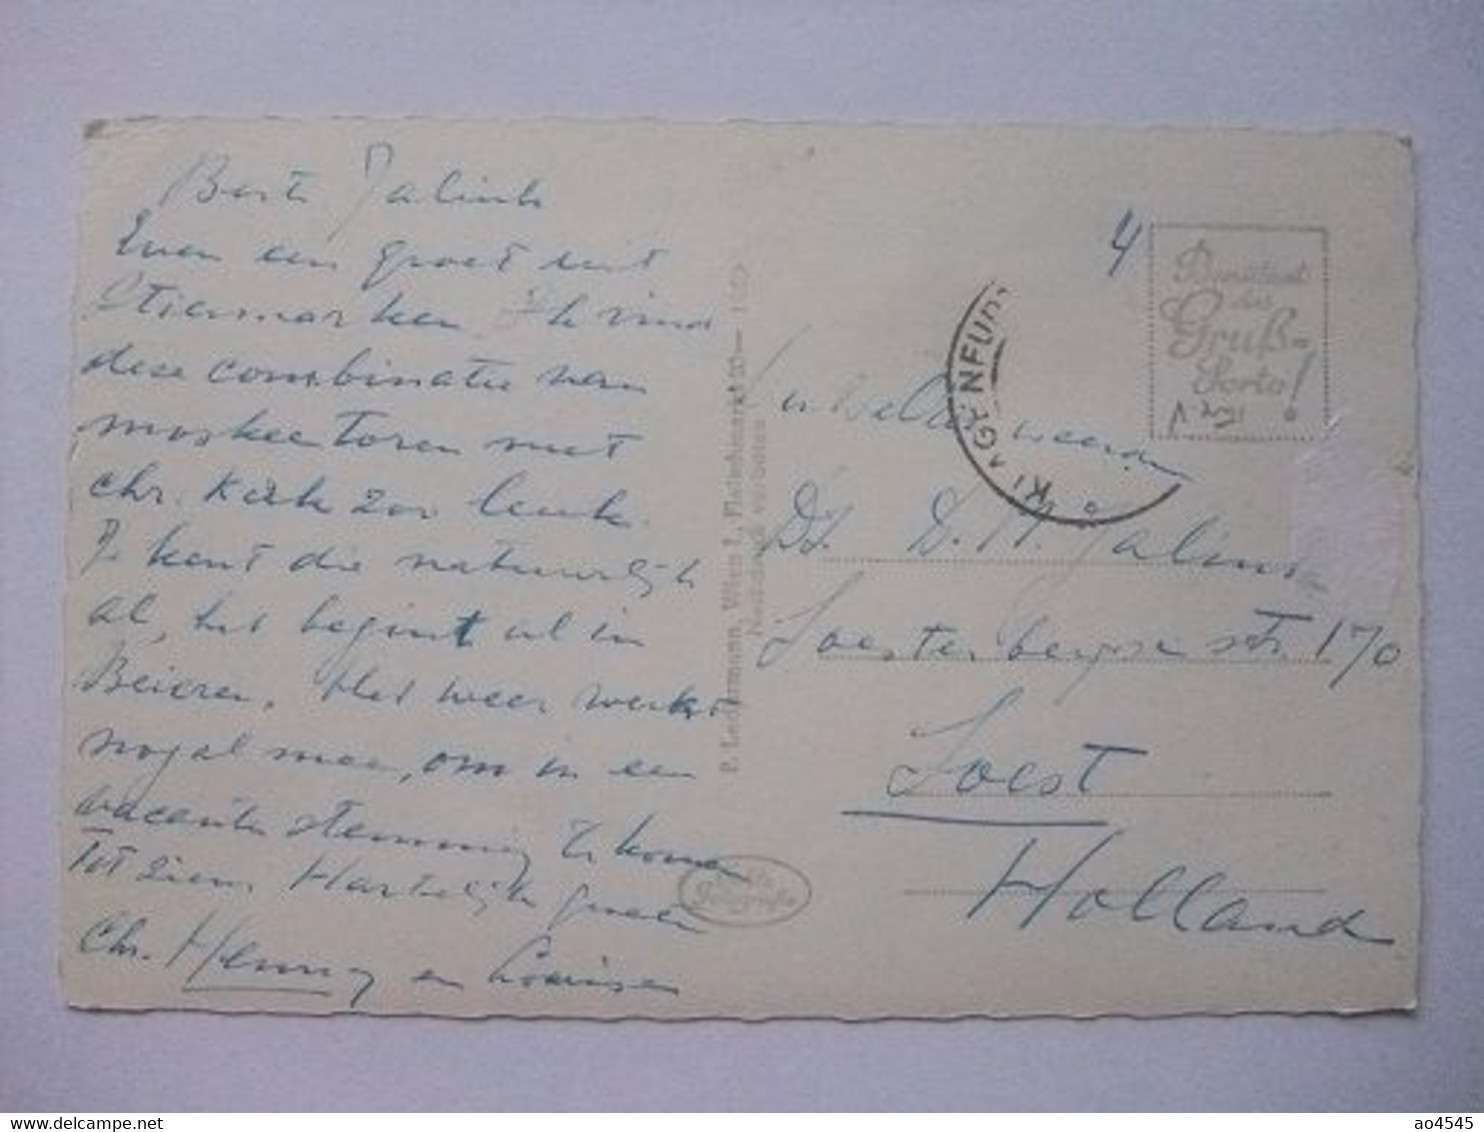 Beste Jalink
Even een groet uit
Stiermarken Ik vind
deze combinatie van
moskeetoren met
chr. Kerk zoo leuk.
Je kent die natuurlijk
al, het begint al in
Beieren. Het weer werkt
nogal mee, om in een
vacantie stemming te komen
Tot ziens Hartelijke groeten
Chr. Henny en Louise
P. Ledermann, Wien I., Fleischmarkt 20
Nachdruck verboten
4
Benützet
das
Gruß-
Porto!
KLAGENFURT
weled. 
Ds. D. H. Jalink
Soesterbergse str. 170
Soest
Holland
Echte
Fotografie
www.delcampe.net
ao4545